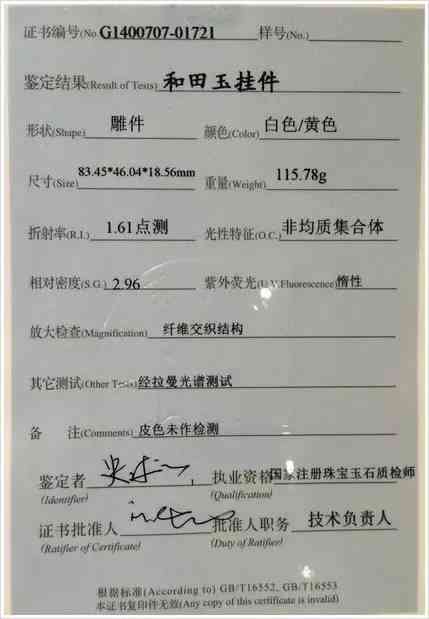 证书编号(No.) G1400707-01721 样号(No.)
鉴定结果(Result of Tests) 和田玉挂件
形状(Shape) 雕件 颜色(Color) 白色/黄色
尺寸(Size) 83.45*46.04*18.56mm 重量(Weight) 115.78g
折射率(R.I.) 1.61点测 光性特征(O.C.) 非均质集合体
相对密度(S.G.) 2.96 紫外荧光(U.V.Fluorescence) 惰性
放大检查(Magnification) 纤维交织结构
其它测试(Other Tests) 经拉曼光谱测试
备 注(Comments) 皮色未作检测
鉴定者 执业资格 国家注册珠宝玉石质检师
(Identifier) (Qualification)
证书批准人 批准人职务 技术负责人
(Ratifier of Certificate) (Duty of Ratifier)
根据标准(According to) GB/T16552, GB/T16553
本证书复印件无效(Any copy of this certificate is invalid)